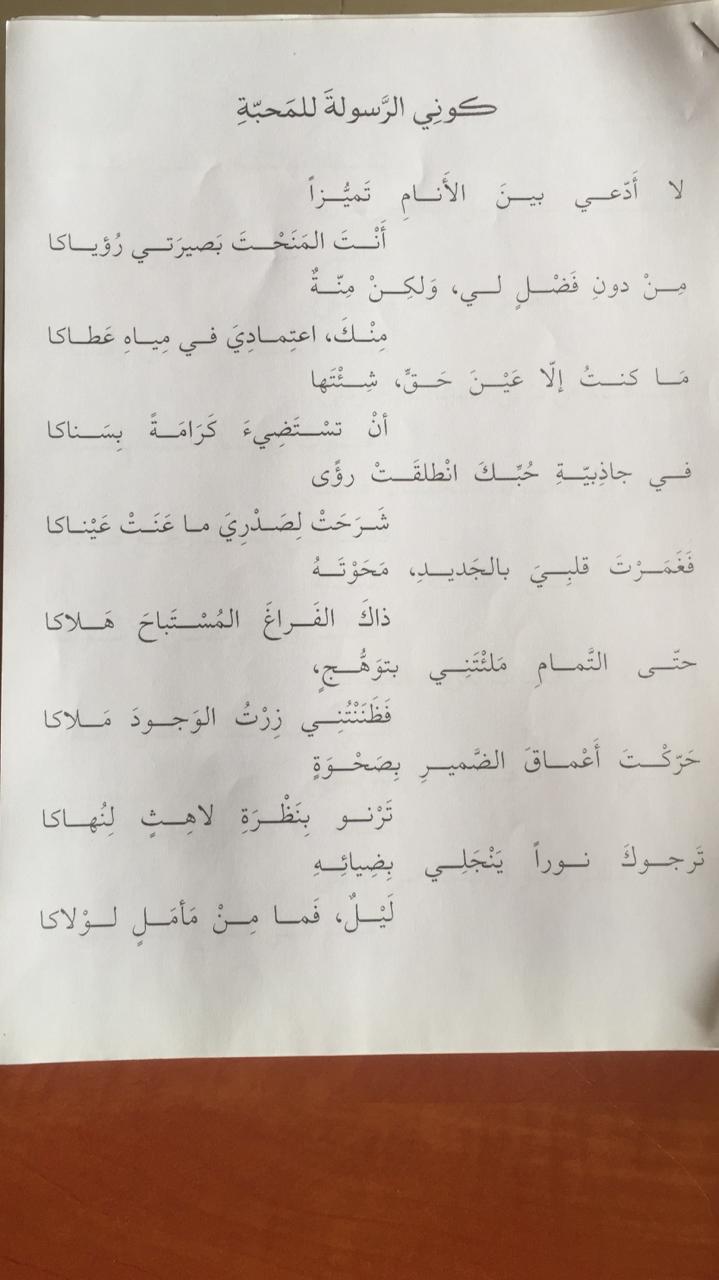 كونِي الرَّسولةَ للمَحبّةِ
لا أَدّعي بينَ الأَنامِ تَميُّزاً
أَنْتَ المَنَحْتَ بَصيرَتي رُؤياكا
مِنْ دونِ فَضْلٍ لي، وَلكِنْ مِنّةٌ
مِنْكَ، اعتِمادِيَ في مِياهِ عَطاكا
مَا كنتُ إلّا عَيْنَ حَقٍّ، شِئْتَها
أنْ تسْتَضِيءَ كَرَامَةً بِسَناكا
في جاذِبيّةِ حُبِّكَ انْطلقَتْ رؤًى
شَرَحَتْ لِصَدْرِيَ ما عَنَتْ عَيْناكا
فَغَمَرْتَ قلبِيَ بالجَديدِ، مَحَوْتَهُ
ذاكَ الفَراغَ المُسْتَباحَ هَلاكا
حتّى التَّمامِ مَلئْتَنِي بتوَهُّجٍ،
فَظَنَنْتُنِي زِرْتُ الوَجودَ مَلاكا
حَرّكْتَ أَعْماقَ الضَّميرِ بِصَحْوَةٍ
تَرْنو بِنَظْرَةِ لاهِثٍ لِنُهاكا
تَرجوكَ نوراً يَنْجَلِي بِضِيائِهِ
لَيْلٌ، فَما مِنْ مَأمَلٍ لوْلاكا